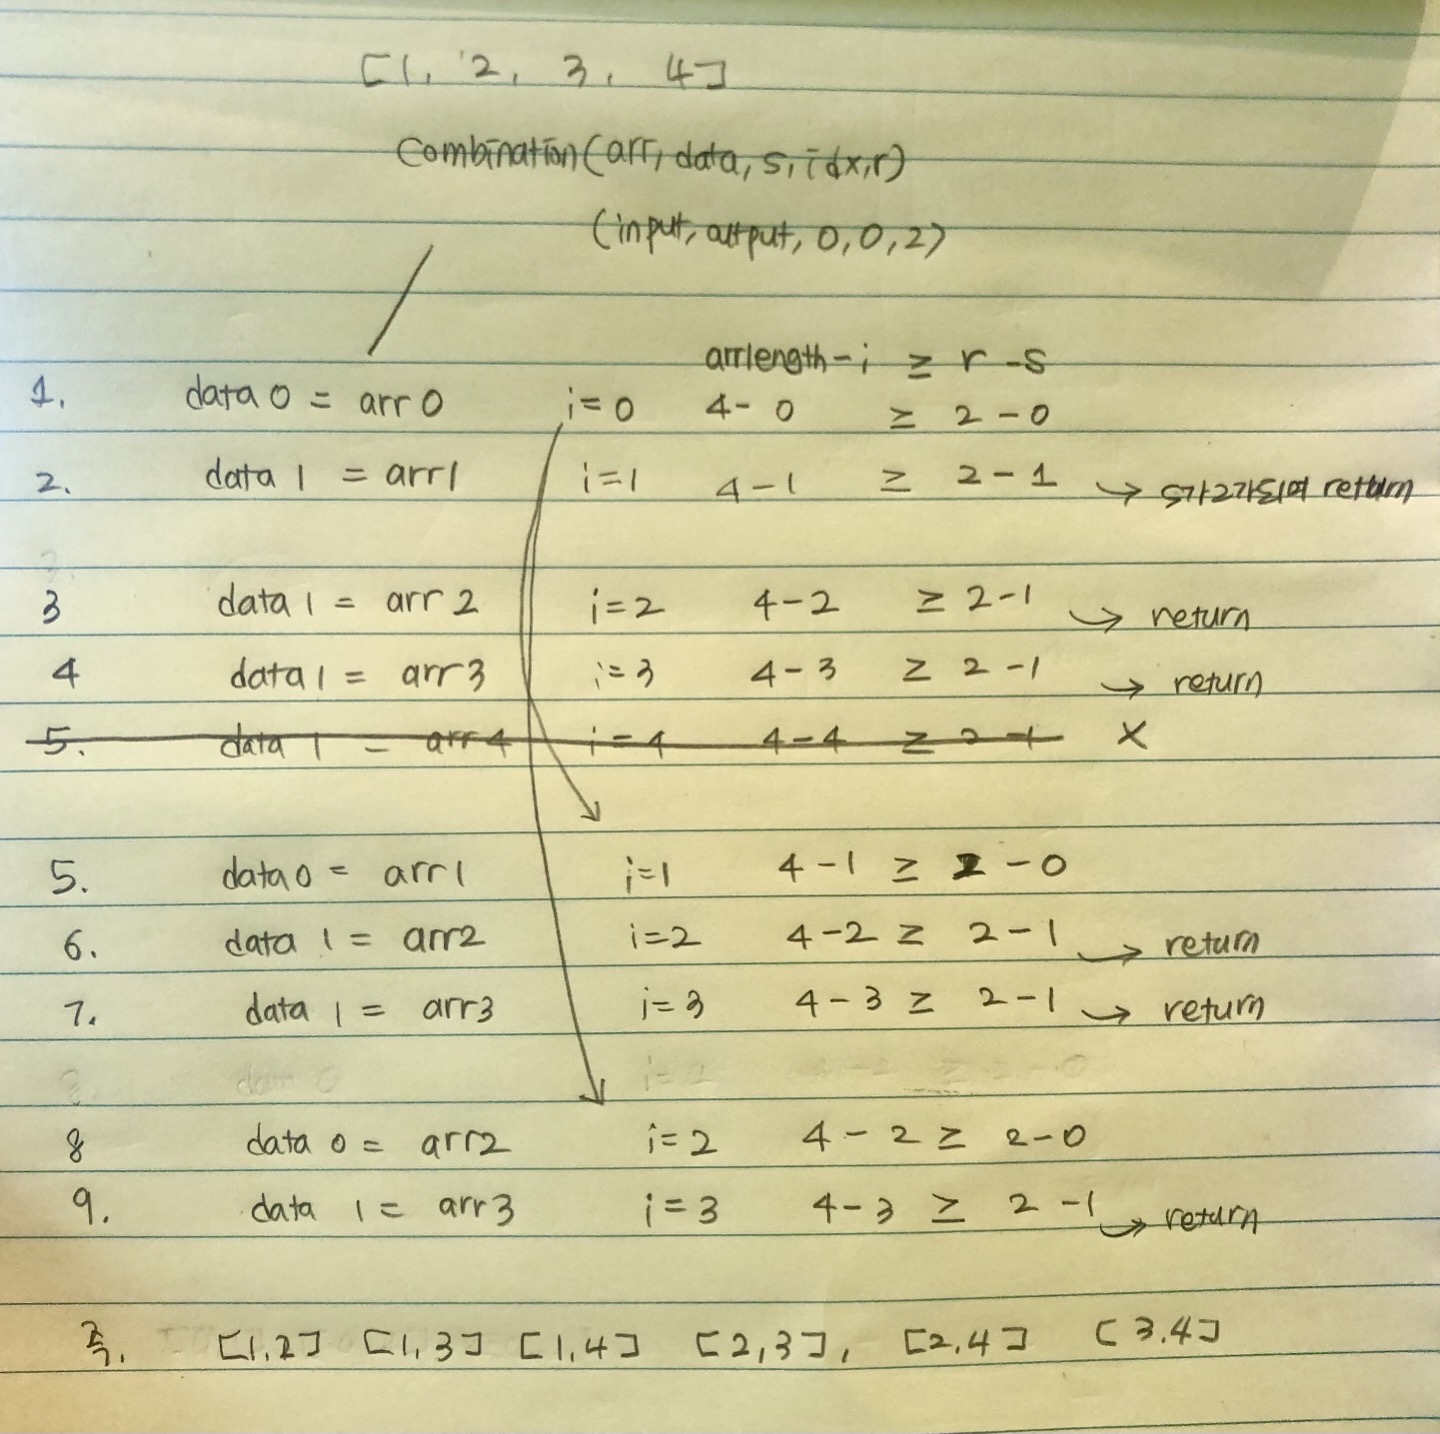 [1, 2, 3, 4]
Combination(arr, data, s, idx, r)
(input, output, 0, 0, 2)
arrlength - i ≥ r - s
1. data 0 = arr 0 i=0 4- 0 ≥ 2 - 0
2. data 1 = arr1 i=1 4-1 ≥ 2-1 → s가2가되어 return
3 data 1 = arr 2 i=2 4-2 ≥ 2-1 → return
4 data 1 = arr 3 i=3 4-3 ≥ 2-1 → return
5. data 1 = arr 4 i=4 4-4 ≥ 2-1 X
5. data 0 = arr1 i=1 4-1 ≥ 2-0
6. data 1 = arr2 i=2 4-2 ≥ 2-1 → return
7. data 1 = arr3 i=3 4-3 ≥ 2-1 → return
8 data 0 = arr2 i=2 4-2 ≥ 2-0
9. data 1 = arr3 i=3 4-3 ≥ 2-1 → return
즉. [1,2] [1,3] [1,4] [2,3], [2,4] [3.4]